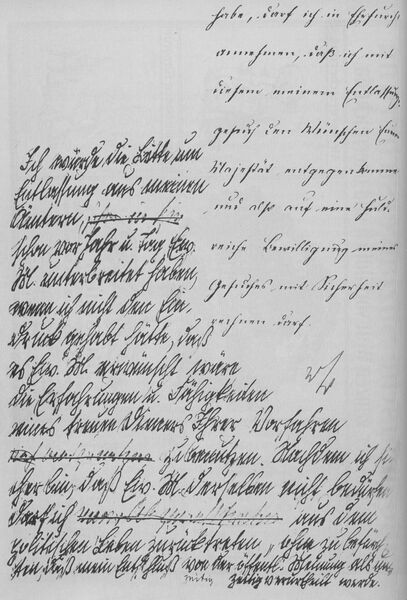 habe, darf ich in Ehrfurcht
annehmen, daß ich mit
diesem meinem Entlassungs-
gesuch den Wünschen Eurer
Majestät entgegenkomme
und also auf eine huld-
reiche Bewilligung meines
Gesuches mit Sicherheit
rechnen darf.
Ich würde die Bitte um
Entlassung aus meinen
Ämtern,
schon vor Jahr u. Tag Ew.
M. unterbreitet haben,
wenn ich nicht den Ein-
druck gehabt hätte, daß
es Ew. M. erwünscht wäre
die Erfahrungen u. Fähigkeiten
eines treuen Dieners Ihrer Vorfahren
zu benutzen. Nachdem ich si-
cher bin, daß Ew. M. derselben nicht bedürfen
darf ich aus dem
politischen Leben zurücktreten, ohne zu befürch-
ten, daß mein Entschluß von der öffentl. Meinung als un-
zeitig verurtheilt werde.